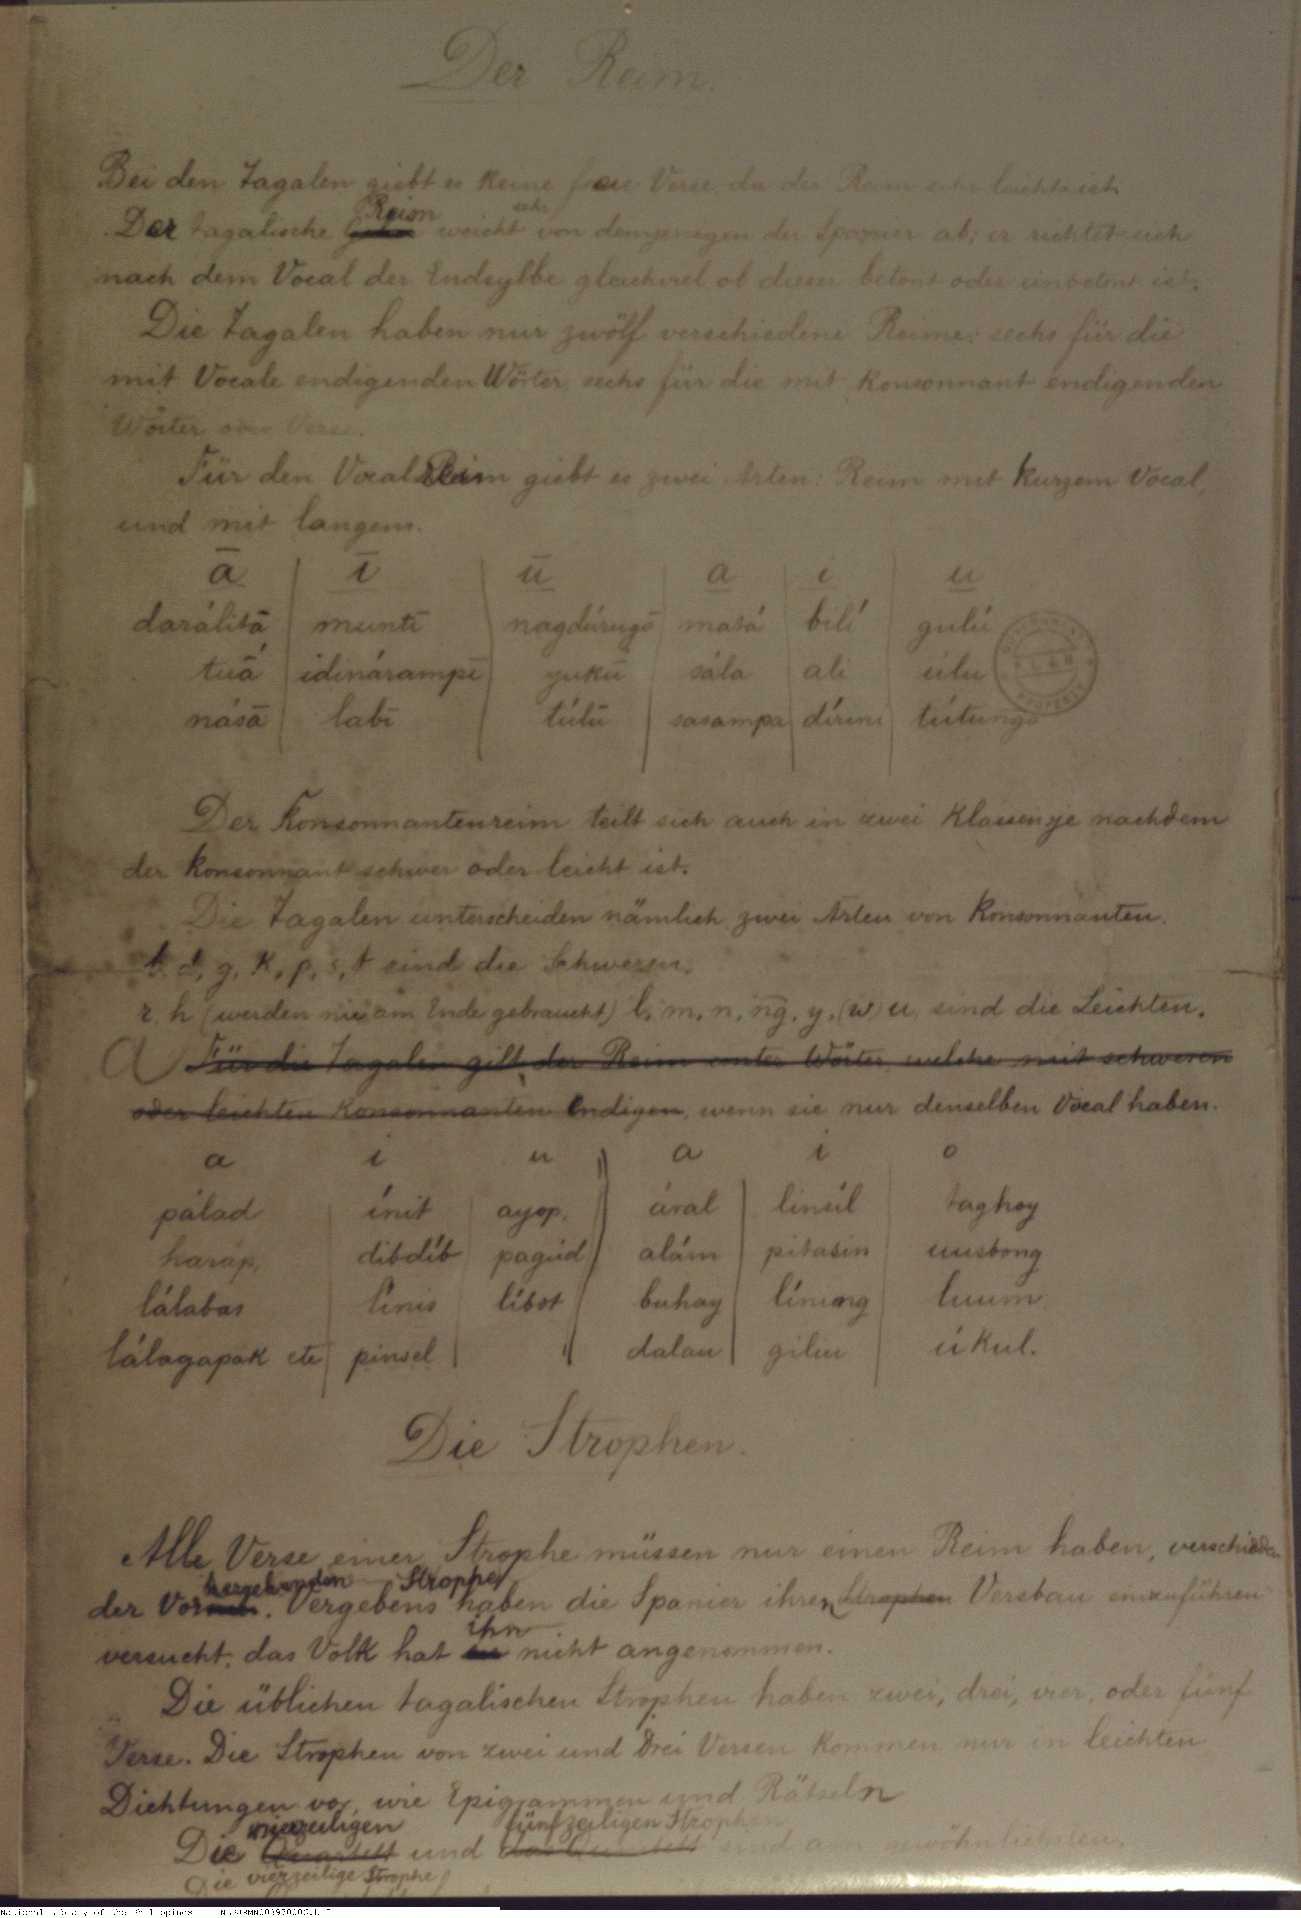 Der Reim.
Bei den Tagalen giebt es keine freie Verse, da der Reim sehr leicht ist.
Der tagalische Reim weicht sehr von demjenigen der Spanier ab; er richtet sich
nach dem Vocal der Endsylbe gleichviel ob dieser betont oder unbetont ist.
Die Tagalen haben nur zwölf verschiedene Reime: sechs für die
mit Vocale endigenden Wörter, sechs für die mit Konsonnant endigenden
Wörter oder Verse.
Für den Vocalreim giebt es zwei Arten: Reim mit kurzem Vocal,
und mit langem.
ā ī ū a i u
darálitā muntī nagdúrugō masá bilí gulú
tuā́ idinárampī yukū sála ali úlu
násā labī túlū sasampa díríni tútungo
Der Konsonnantenreim teilt sich auch in zwei Klassen je nachdem
der Konsonnant schwer oder leicht ist.
Die Tagalen unterscheiden nämlich zwei Arten von Konsonnanten.
b, d, g, k, p, s, t sind die Schweren.
r, h (werden nie am Ende gebraucht) l, m, n, ng, y, (w) u, sind die Leichten.
a Für die Tagalen gilt der Reim unter Wörter, welche mit schweren
oder leichten Konsonnanten endigen, wenn sie nur denselben Vocal haben.
a i u a i o
pálad ínit ayop. áral linsíl taghoy
harap, dibdíb pagúd alám pitasin uusbong
lálabas línis líbot buhay líning luum
lálagapak etc pinsel dalau giliu úkul.
Die Strophen.
Alle Verse einer Strophe müssen nur einen Reim haben, verschieden
hergehenden Strophe
der Vor. Vergebens haben die Spanier ihren Strophen Versbau einzuführen
versucht; das Volk hat ihn nicht angenommen.
Die üblichen tagalischen Strophen haben zwei, drei, vier, oder fünf
Verse. Die Strophen von zwei und drei Versen kommen nur in leichten
Dichtungen vor, wie Epigrammen und Rätseln
vierzeiligen fünfzeiligen Strophen
Die Quartett und das Quintett sind am gewöhnlichsten.
Die vierzeilige Strophe